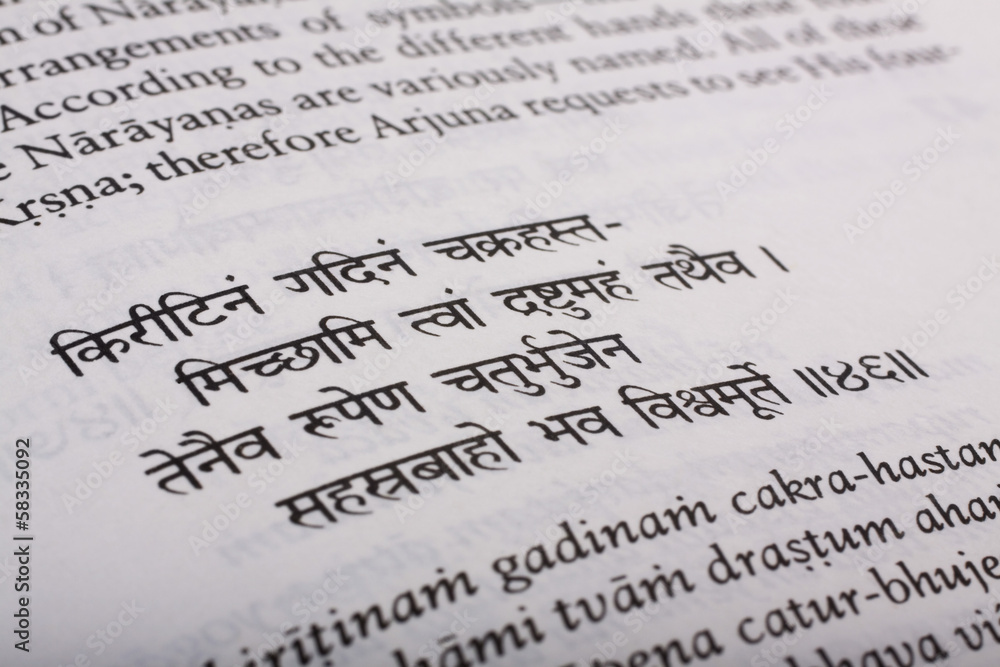 of Nārāyaṇa
arrangements of symbols
According to the different hands these
Nārāyaṇas are variously named. All of these
Kṛṣṇa; therefore Arjuna requests to see His four-
किरीटिनं गदिनं चक्रहस्त-
मिच्छामि त्वां द्रष्टुमहं तथैव ।
तेनैव रूपेण चतुर्भुजेन
सहस्रबाहो भव विश्वमूर्ते ॥४६॥
kirīṭinaṁ gadinaṁ cakra-hastam
tvāṁ draṣṭum aham
catur-bhuje
bhava
Adobe Stock | #58335092